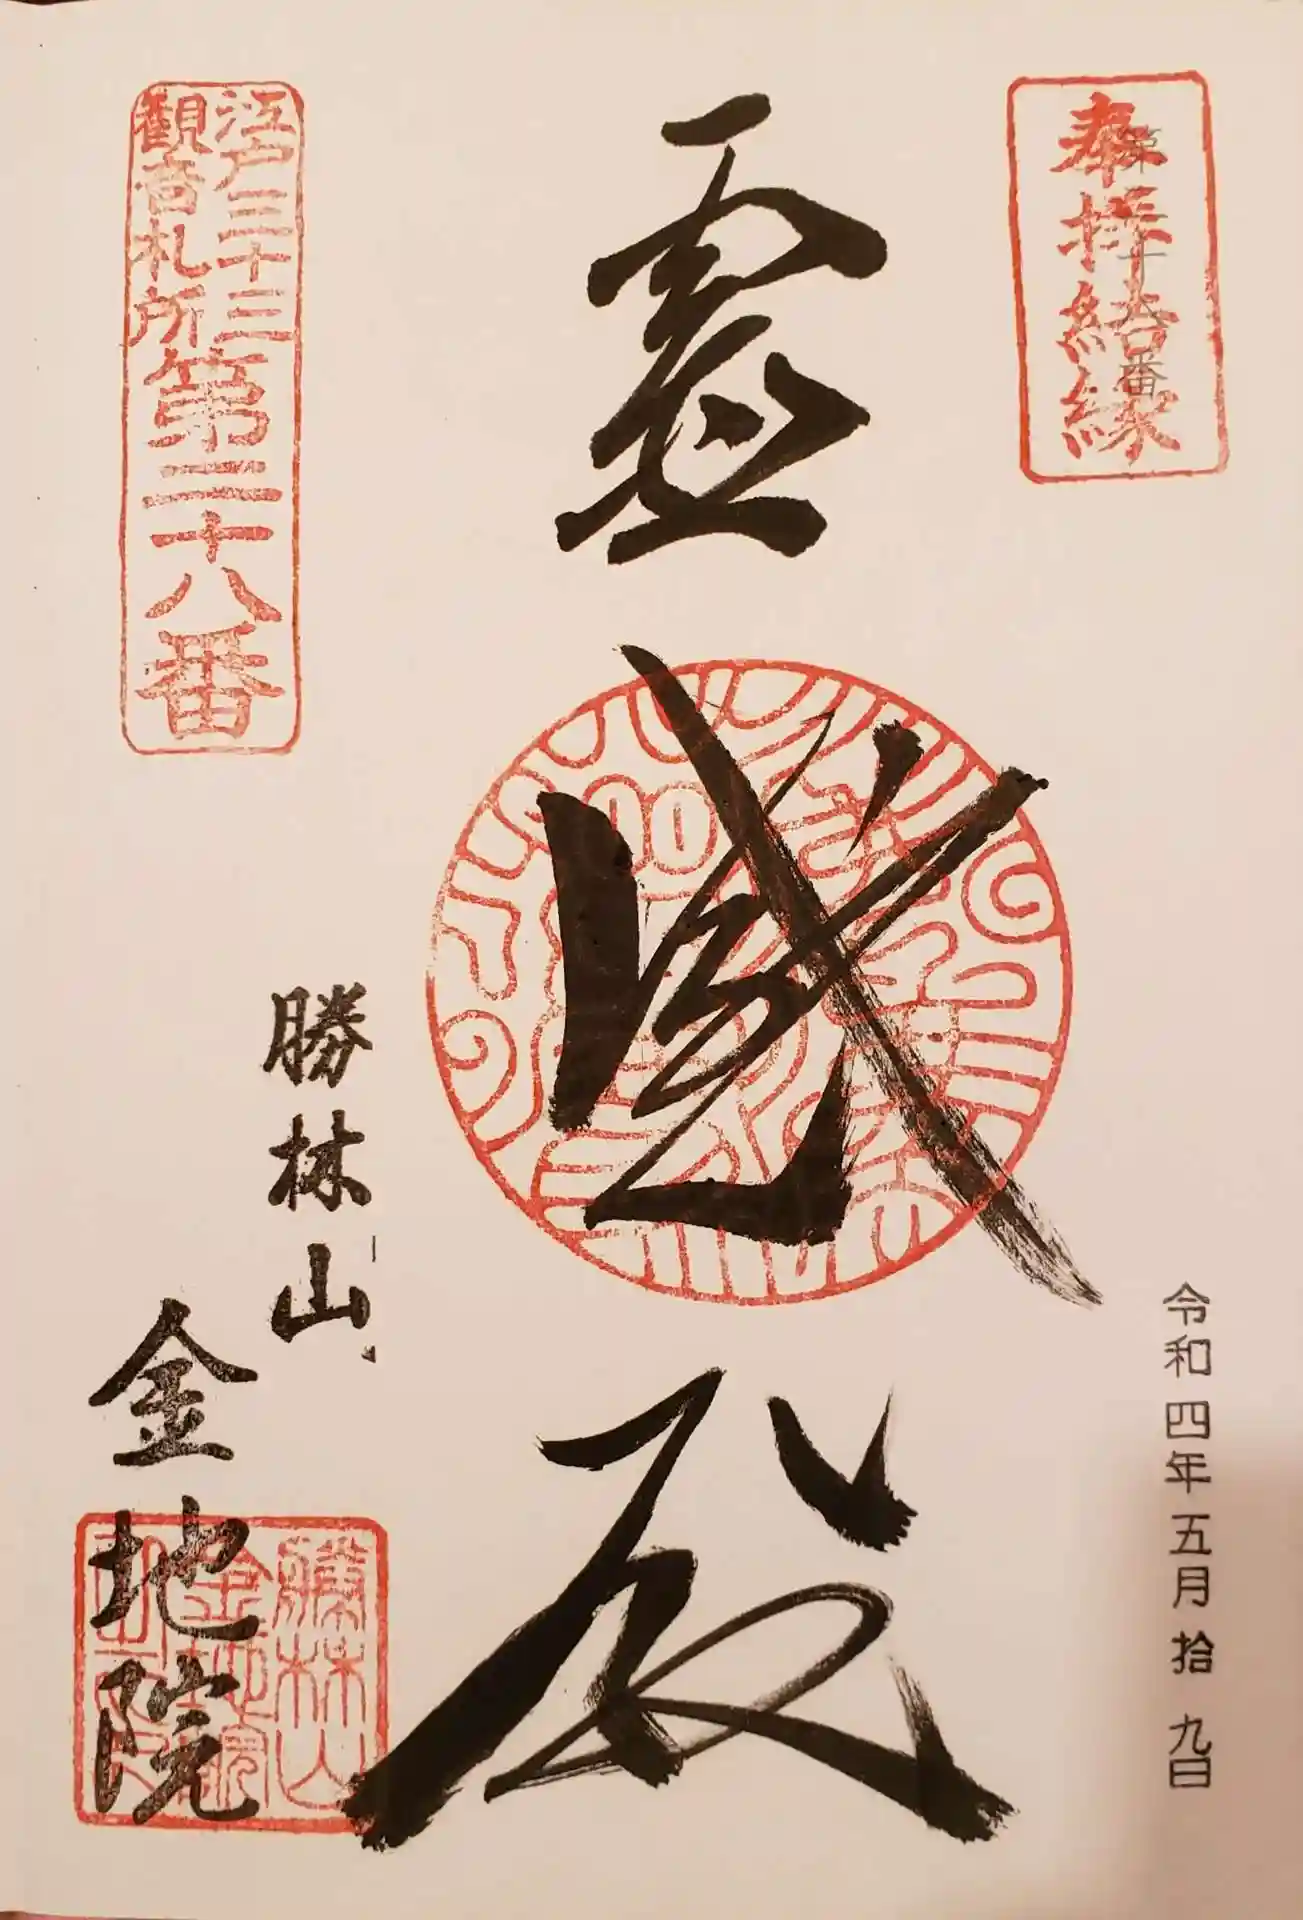 奉拝結縁
令和四年五月拾九日
霊
殿
江戸三十三
觀音札所
第二十八番
勝林山
金地院
勝林山
金地院